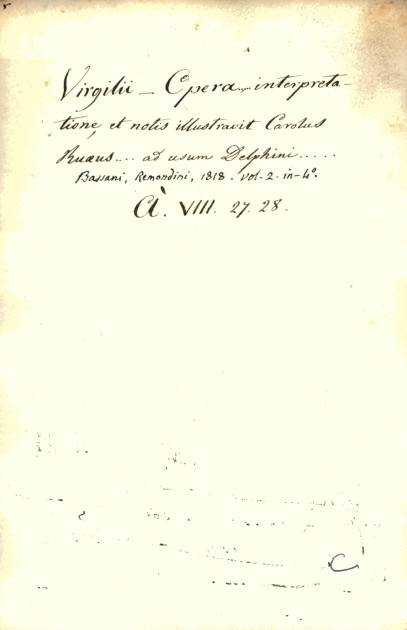 Virgilii — Opera.... interpreta-
tione, et notis illustravit Carolus
Ruæus.... ad usum Delphini.....
Bassani, Remondini, 1818. vol. 2. in-4°.
A. VIII. 27. 28.
C